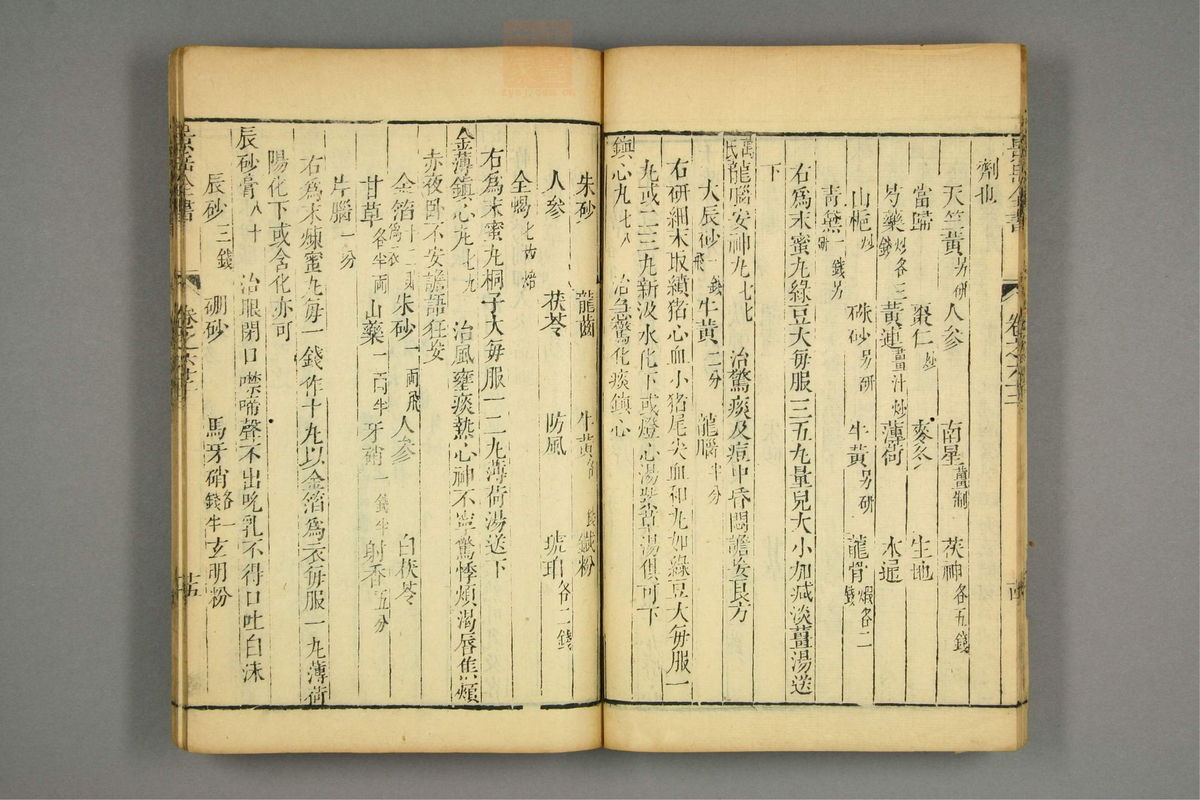 劑也
天竺黃另研 人參 南星薑制 茯神各五錢
當歸 棗仁炒 麥冬 生地
芍藥炒各三錢 黃連薑汁炒 薄荷 木通
山梔炒 硃砂另研 牛黃另研 龍骨煆各二錢
靑黛一錢另研
右爲末蜜丸綠豆大每服三五丸量兒大小加減淡薑湯送
下
萬氏龍腦安神丸七七 治驚痰及痘中昏悶譫妄良方
大辰砂飛一錢 牛黃二分 龍腦半分
右研細末取豬心血小猪尾尖血和丸如綠豆大每服一
丸或二三丸新汲水化下或燈心湯紫草湯俱可下
鎭心丸七八 治急驚化痰鎭心
朱砂 龍齒 牛黃各一錢 鐵粉
人參 茯苓 防風 琥珀各二錢
全蝎七箇焙
右爲末蜜丸桐子大每服一二丸薄荷湯送下
金薄鎭心丸七九 治風壅痰熱心神不寧驚悸煩渴唇焦頰
赤夜卧不安譫語狂妄
金箔十二貼爲衣 朱砂一兩飛 人參 白茯苓
甘草各半兩 山藥一兩半 牙硝一錢半 射香五分
片腦一分
右爲末煉蜜丸每一錢作十丸以金箔爲衣每服一丸薄荷
湯化下或含化亦可
辰砂膏八十 治眼閉口噤啼聲不出吮乳不得口吐白沫
辰砂三錢 硼砂 馬牙硝各一錢半 玄明粉
景岳全書
卷之六十二